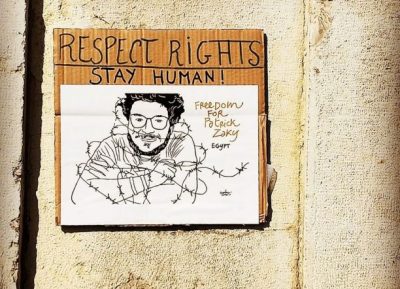 RESPECT RiGHTS
STAY HUMAN!
FREEDOM
FOR
PaTRICK
Zaky
EGYPT